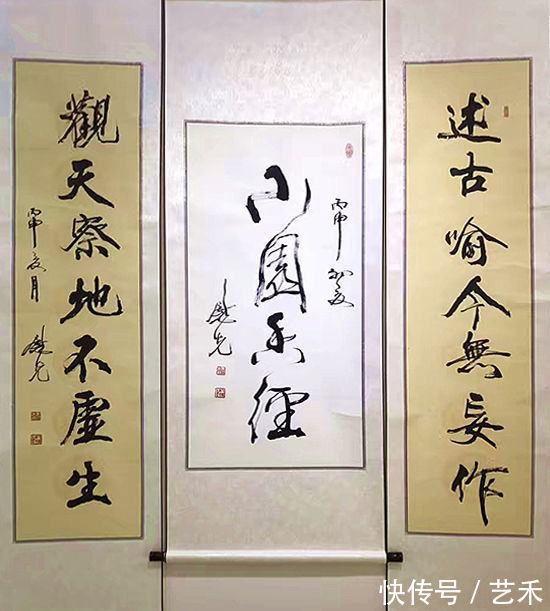 述古喻今無妄作
小園香徑
丙申初夏
觀天察地不虛生
丙申夏月
快传号 / 艺禾